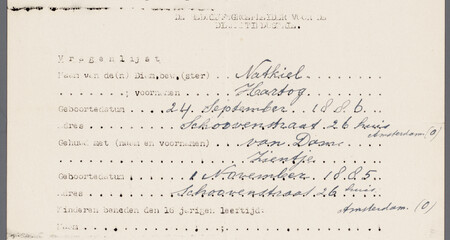 V r a g e n l i j s t
Naam van de(n) Dien.be..(ster) Natkiel
: voornamen Hartog
Geboortedatum 24 September 1886
Adres Schoovenstraat 26 huis
Amsterdam (O)
Gehuwd met (naam en voornamen) van Dam
Sientje
Geboortedatum 1 November 1885
Adres Schoovenstraat 26 huis
Amsterdam. (O)
Kinderen beneden den 16 jarigen leeftijd.
Naam